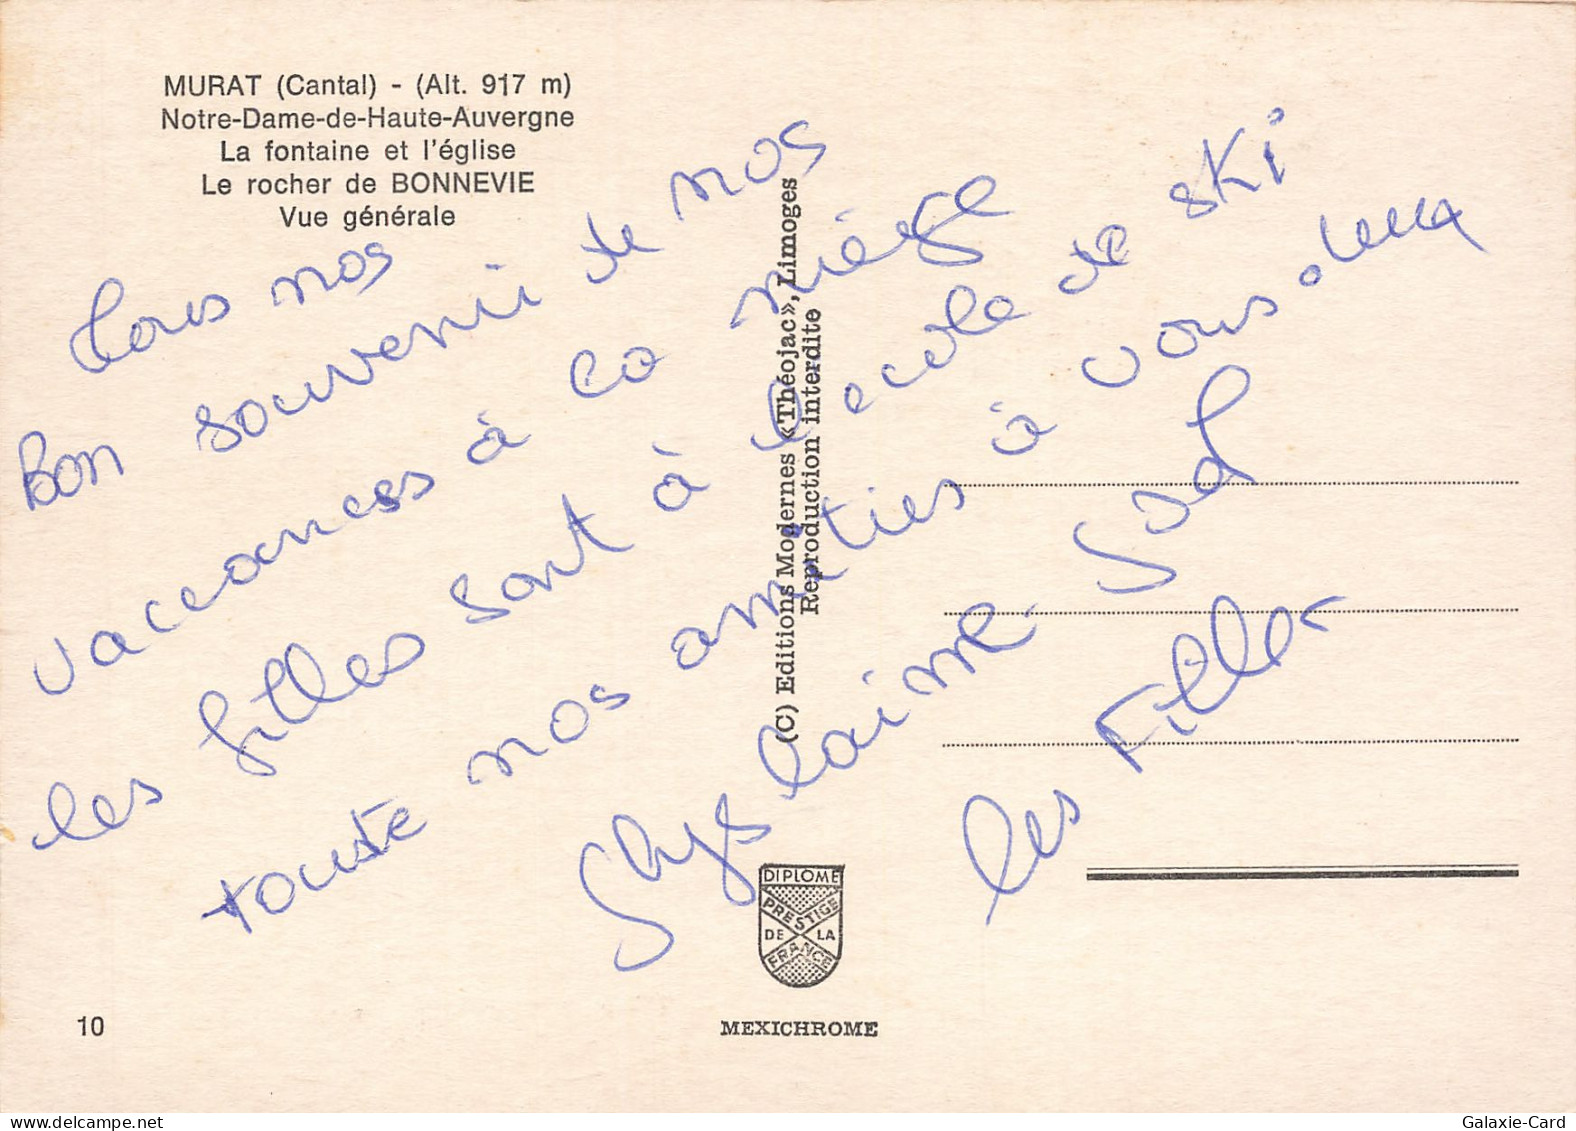 MURAT (Cantal) - (Alt. 917 m)
Notre-Dame-de-Haute-Auvergne
La fontaine et l'église
Le rocher de BONNEVIE
Vue générale
tous nos
Bon souvenir de nos
vaccances à la niége
les filles sont à l'ecole de ski
toute nos amitiés à vous deux
Ghyslaine
les Filles
(C) Editions Modernes «Théojac», Limoges
Reproduction interdite
DIPLOME
PRESTIGE
DE LA
FRANCE
10
MEXICHROME
Galaxie-Card